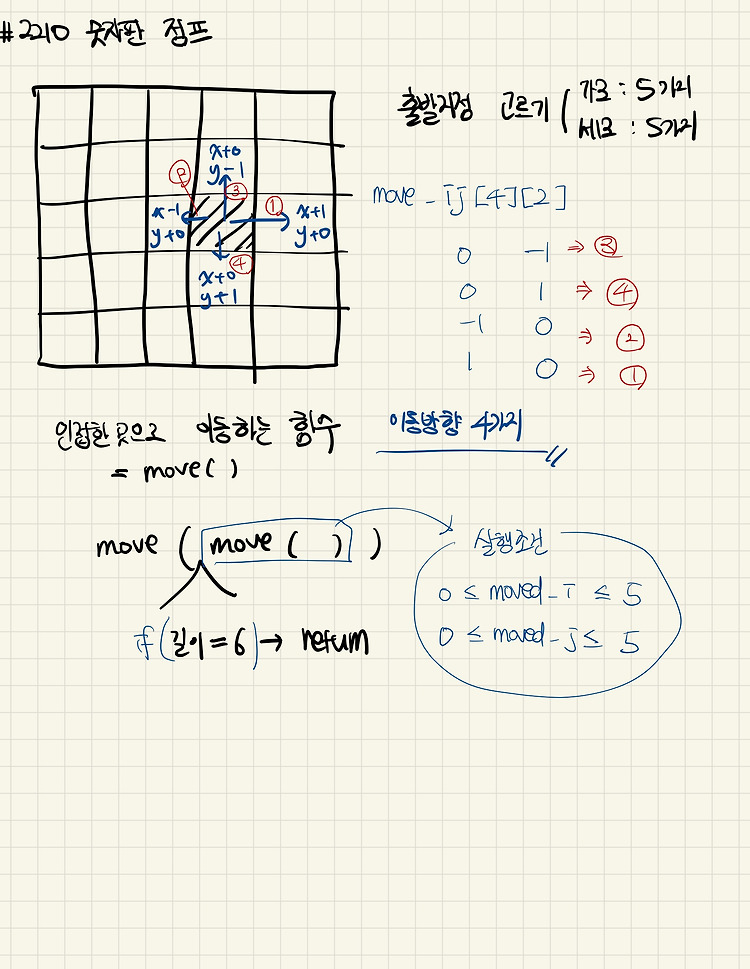 #2210 숫자판 점프
출발지점 고르기 ( 가로 : 5가지
세로 : 5가지
x+0
y-1
②
③
①
x-1
y+0
x+1
y+0
④
x+0
y+1
move - ij [4][2]
0 -1 ⇒ ③
0 1 ⇒ ④
-1 0 ⇒ ②
1 0 ⇒ ①
인접한 곳으로 이동하는 함수
= move( )
이동방향 4가지
move ( move ( ) )
실행조건
0 ≤ moved - i ≤ 5
0 ≤ moved - j ≤ 5
if (길이 = 6) → return